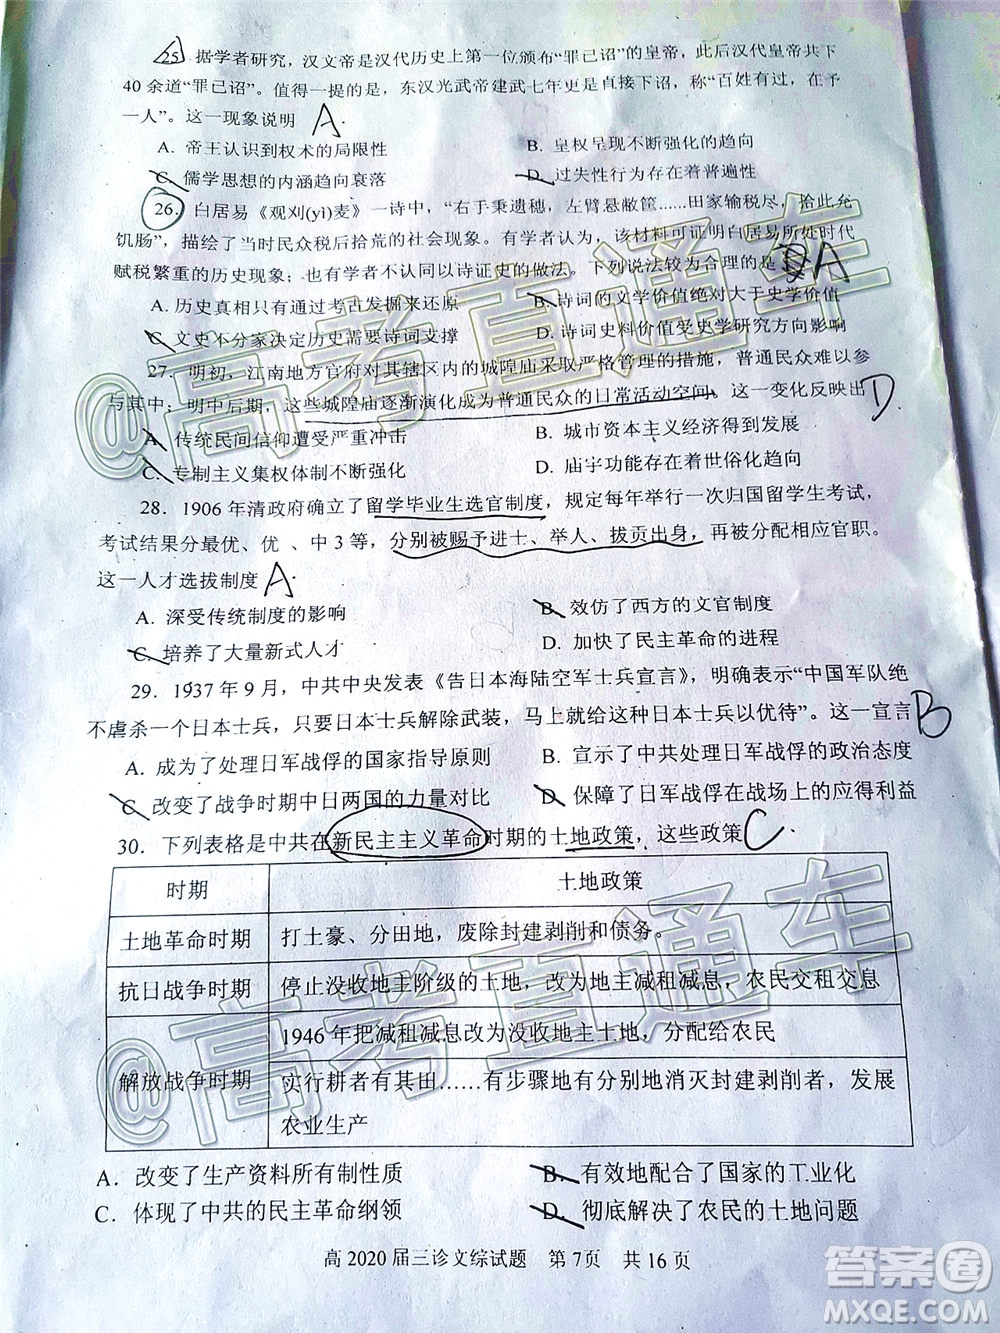 25. 据学者研究，汉文帝是汉代历史上第一位颁布“罪己诏”的皇帝，此后汉代皇帝共下
40 余道“罪己诏”。值得一提的是，东汉光武帝建武七年更是直接下诏，称“百姓有过，在予
一人”。这一现象说明 A.
A. 帝王认识到权术的局限性 B. 皇权呈现不断强化的趋向
C. 儒学思想的内涵趋向衰落 D. 过失性行为存在着普遍性
26. 白居易《观刈(yì)麦》一诗中，“右手秉遗穗，左臂悬敝筐……田家输税尽，拾此充
饥肠”，描绘了当时民众税后拾荒的社会现象。有学者认为，该材料可证明白居易所处时代
赋税繁重的历史现象；也有学者不认同以诗证史的做法。下列说法较为合理的是 A
A. 历史真相只有通过考古发掘来还原 B. 诗词的文学价值绝对大于史学价值
C. 文史不分家决定历史需要诗词支撑 D. 诗词史料价值受史学研究方向影响
27. 明初，江南地方官府对其辖区内的城隍庙采取严格管理的措施，普通民众难以参
与其中；明中后期，这些城隍庙逐渐演化成为普通民众的日常活动空间。这一变化反映出 D
A. 传统民间信仰遭受严重冲击 B. 城市资本主义经济得到发展
C. 专制主义集权体制不断强化 D. 庙宇功能存在着转化趋向
28. 1906 年清政府确立了留学毕业生选官制度，规定每年举行一次归国留学生考试，
考试结果分最优、优 、中 3 等，分别被赐予进士、举人、拔贡出身，再被分配相应官职。
这一人才选拔制度 A.
A. 深受传统制度的影响 B. 效仿了西方的文官制度
C. 培养了大量新式人才 D. 加快了民主革命的进程
29. 1937 年 9 月，中共中央发表《告日本海陆空军士兵宣言》，明确表示“中国军队绝
不虐杀一个日本士兵，只要日本士兵解除武装，马上就给这种日本士兵以优待”。这一宣言 B
A. 成为了处理日军战俘的国家指导原则 B. 宣示了中共处理日军战俘的政治态度
C. 改变了战争时期中日两国的力量对比 D. 保障了日军战俘在战场上的应得利益
30. 下列表格是中共在新民主主义革命时期的土地政策，这些政策 C.
时期 土地政策
土地革命时期 打土豪、分田地，废除封建剥削和债务。
抗日战争时期 停止没收地主阶级的土地，地主减租减息，农民交租交息
解放战争时期 1946 年把减租减息改为没收地主土地，分配给农民
实行耕者有其田……有步骤地有分别地消灭封建剥削者，发展
农业生产
A. 改变了生产资料所有制性质 B. 有效地配合了国家的工业化
C. 体现了中共的民主革命纲领 D. 彻底解决了农民的土地问题
高 2020 届三诊文综试题 第 7页 共 16 页
@高考直通车
@高考直通车
答案圈
MXQE.COM